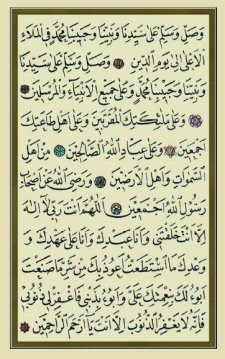 وَصَلِّ وَسَلِّمْ عَلٰى سَيِّدِنَا وَنَبِيِّنَا وَحَبِيبِنَا مُحَمَّدٍ فِى الْمَلَاءِ
الْاَعْلٰى اِلٰى يَوْمِ الدِّينِ وَصَلِّ وَسَلِّمْ عَلٰى سَيِّدِنَا
وَنَبِيِّنَا وَحَبِيبِنَا مُحَمَّدٍ وَعَلٰى جَمِيعِ الْاَنْبِيَاءِ وَالْمُرْسَلِينَ
وَعَلٰى مَلٰئِكَتِكَ الْمُقَرَّبِينَ وَعَلٰى اَهْلِ طَاعَتِكَ
اَجْمَعِينَ وَعَلٰى عِبَادِ اللّٰهِ الصَّالِحِينَ مِنْ اَهْلِ
السَّمٰوَاتِ وَاَهْلِ الْاَرَضِينَ وَرَضِىَ اللّٰهُ عَنْ اَصْحَابِ
رَسُولِ اللّٰهِ اَجْمَعِينَ اَللّٰهُمَّ اَنْتَ رَبِّى لَا اِلٰهَ
اِلَّا اَنْتَ خَلَقْتَنِى وَاَنَا عَبْدُكَ وَاَنَا عَلٰى عَهْدِكَ وَ
وَعْدِكَ مَا اسْتَطَعْتُ اَعُوذُ بِكَ مِنْ شَرِّ مَا صَنَعْتُ
اَبُوءُ لَكَ بِنِعْمَتِكَ عَلَىَّ وَاَبُوءُ بِذَنْبِى فَاغْفِرْ لِى ذُنُوبِى
فَاِنَّهُ لَا يَغْفِرُ الذُّنُوبَ اِلَّا اَنْتَ يَا اَرْحَمَ الرَّاحِمِينَ